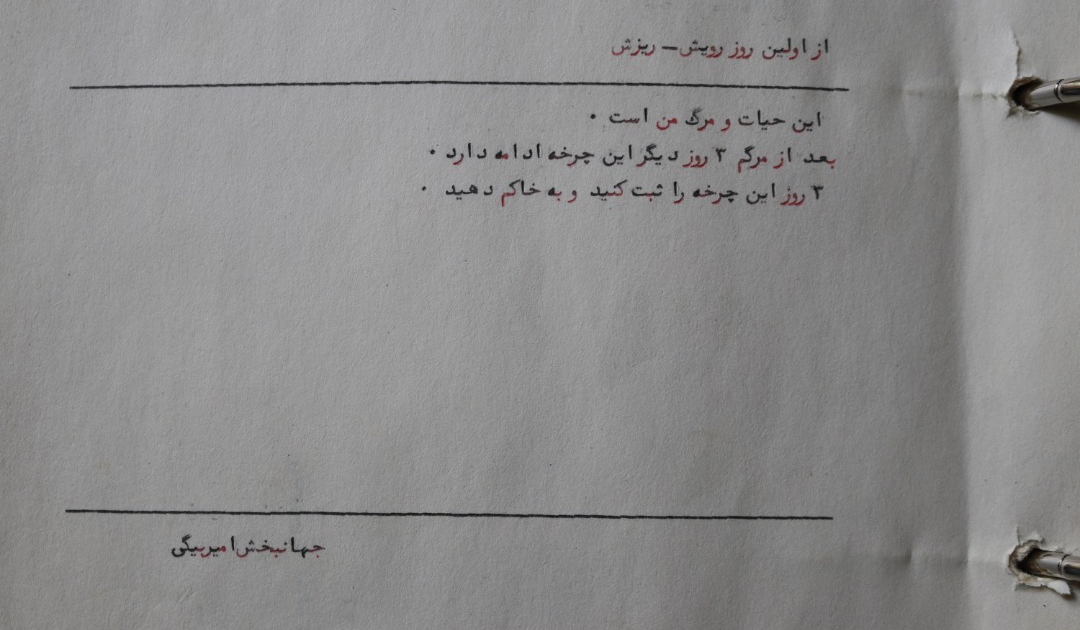 از اولین روز رویش — ریزش
این حیات و مرگ من است .
بعد از مرگم ۳ روز دیگر این چرخه ادامه دارد .
۳ روز این چرخه را ثبت کنید و به خاکم دهید .
جهانبخش امیربیگی